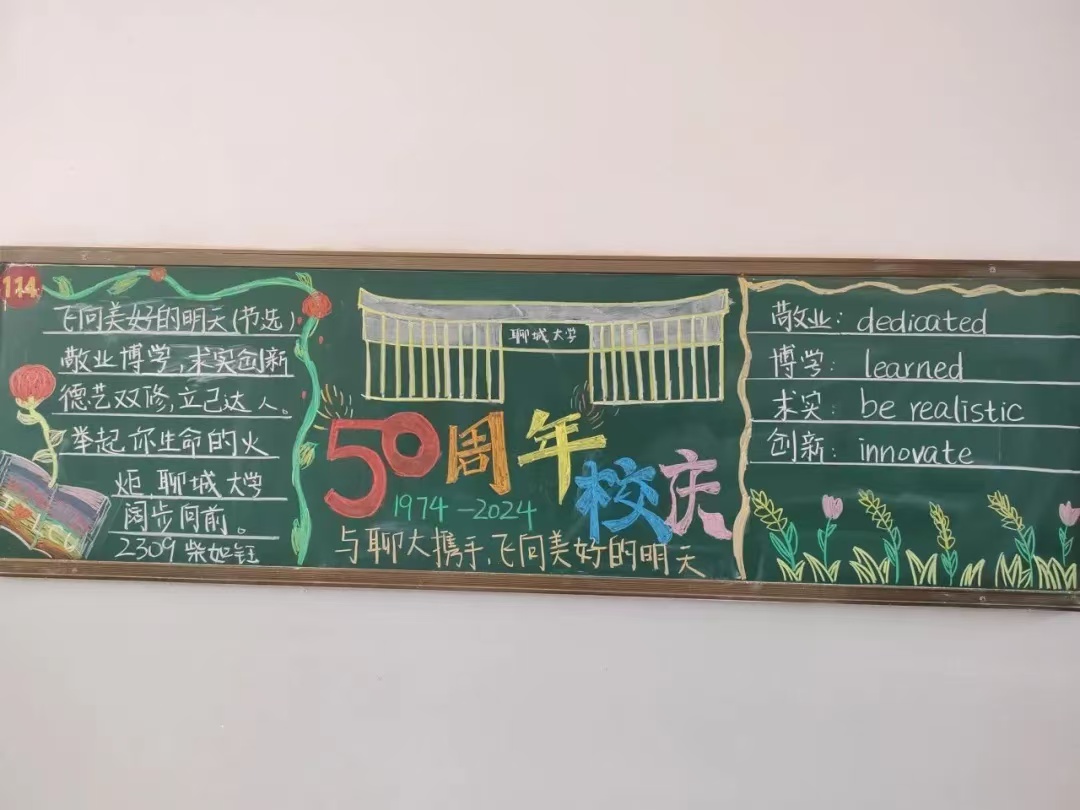 114
飞向美好的明天(节选)
敬业博学,求实创新
德艺双修,立己达人。
举起你生命的火
炬,聊城大学
阔步向前。
2309 柴如钰
聊城大学
50周年校庆
1974-2024
与聊大携手,飞向美好的明天
敬业: dedicated
博学: learned
求实: be realistic
创新: innovate